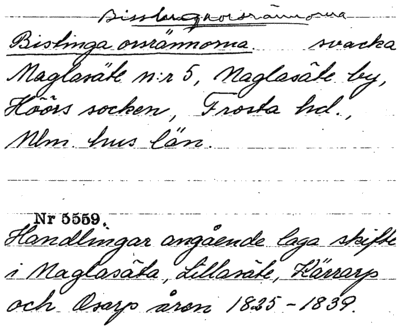 Bistinga orsrännorna. svacka
Maglasäte n:r 5, Maglasäte by,
Höörs socken, Frosta hd.,
Mlm. hus län.
Nr 5559.
Handlingar angående laga skifte
i Maglasäta, Lillasäte, Kärrarp
och Osarp åren 1825-1839.